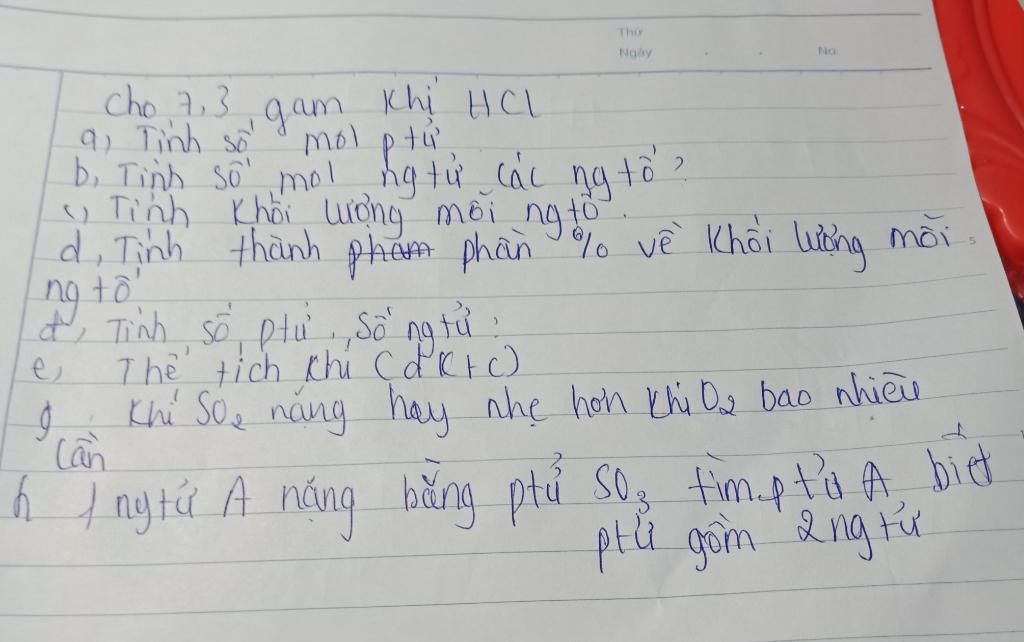 Thứ
Ngày . . No.
Cho 7,3 gam khị HCl
a, Tính số mol ptử
b, Tính số mol ngtử các ngtố?
c, Tính khối lượng mỗi ngtố.
d, Tính thành pham phần % về khối lượng mỗi
ngtố
đ, Tính số ptử, số ngtử?
e, Thể tích khí (đktc)
g. Khí SO2 nặng hay nhẹ hơn khí O2 bao nhiêu
lần
h 1 ngtử A nặng bằng ptử SO3 tìm ptử A, biết
ptử gồm 2 ngtử